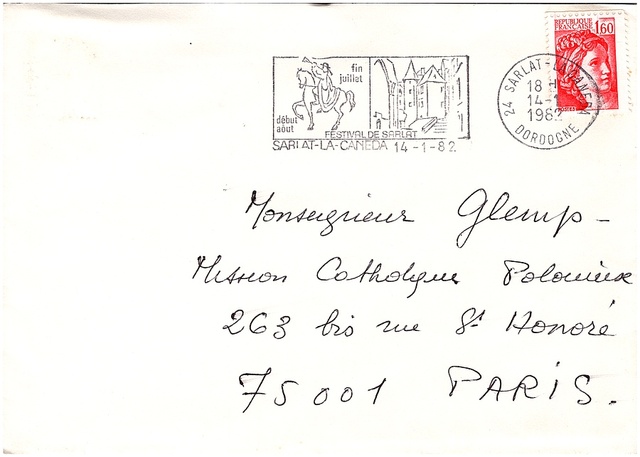 REPUBLIQUE
FRANÇAISE 1,60
fin
juillet
début
août
FESTIVAL DE SARLAT
SARLAT-LA-CANEDA 14-1-82
24 SARLAT-LA-CANEDA
18 H
14-1
1982
DORDOGNE
POSTES
Monseigneur Glemp -
Mission Catholique Polonaise
263 bis rue St Honoré
75001 PARIS.